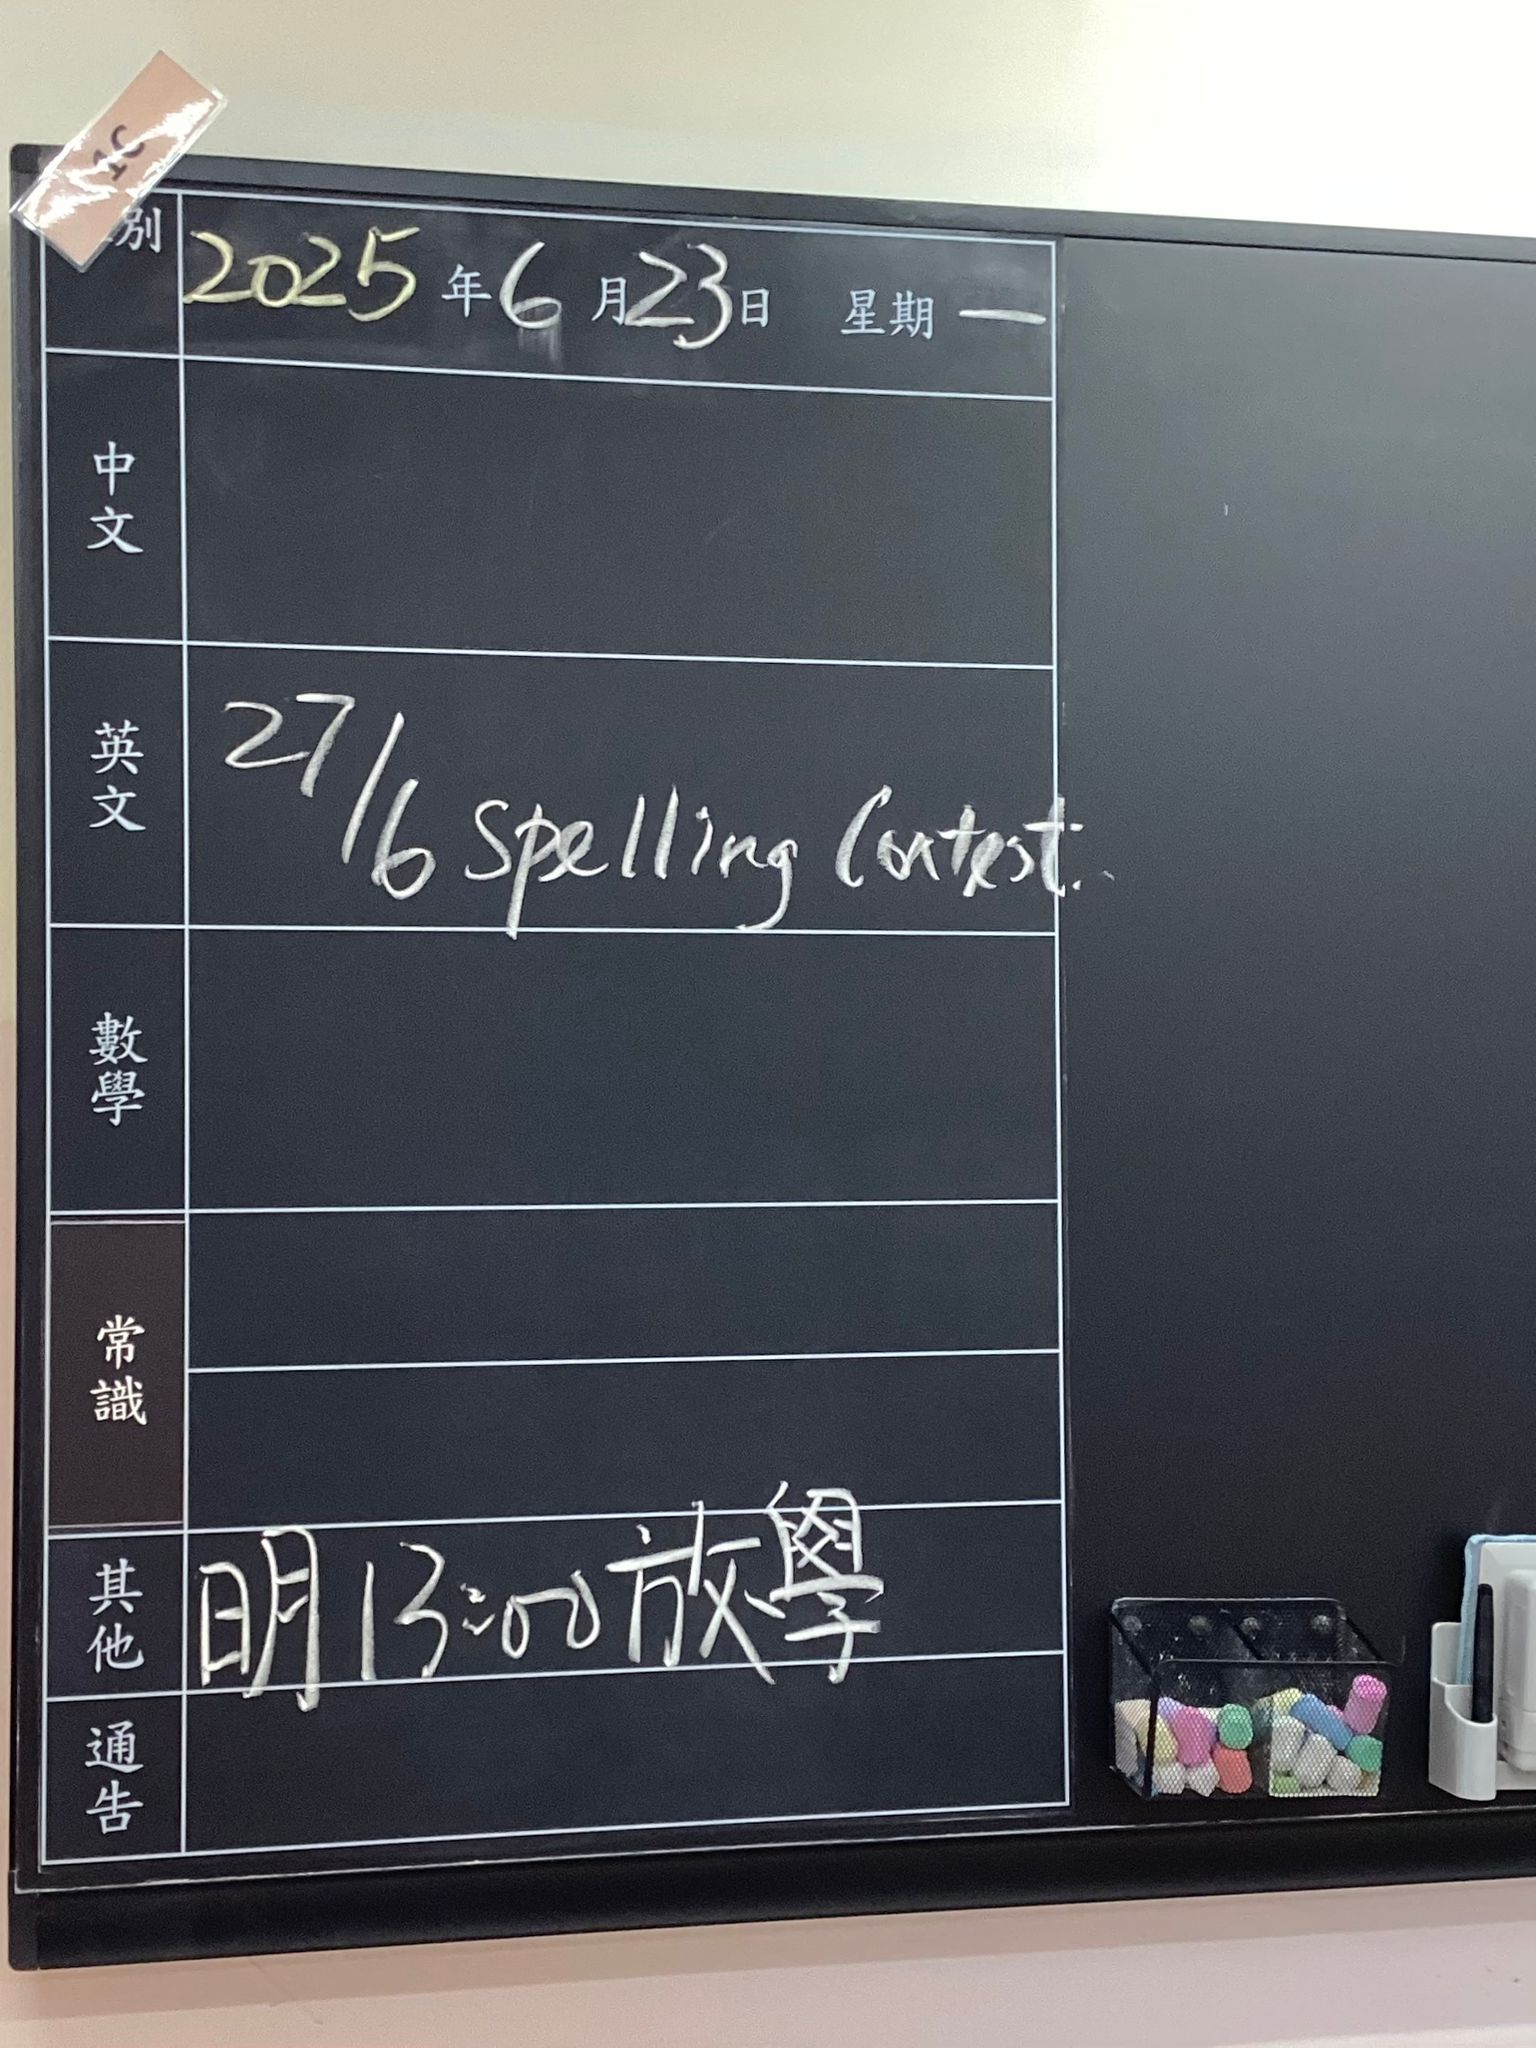 別
2025年6月23日 星期一
中文
英文
27/6 Spelling Contest.
數學
常識
其他
明13:00放學
通告